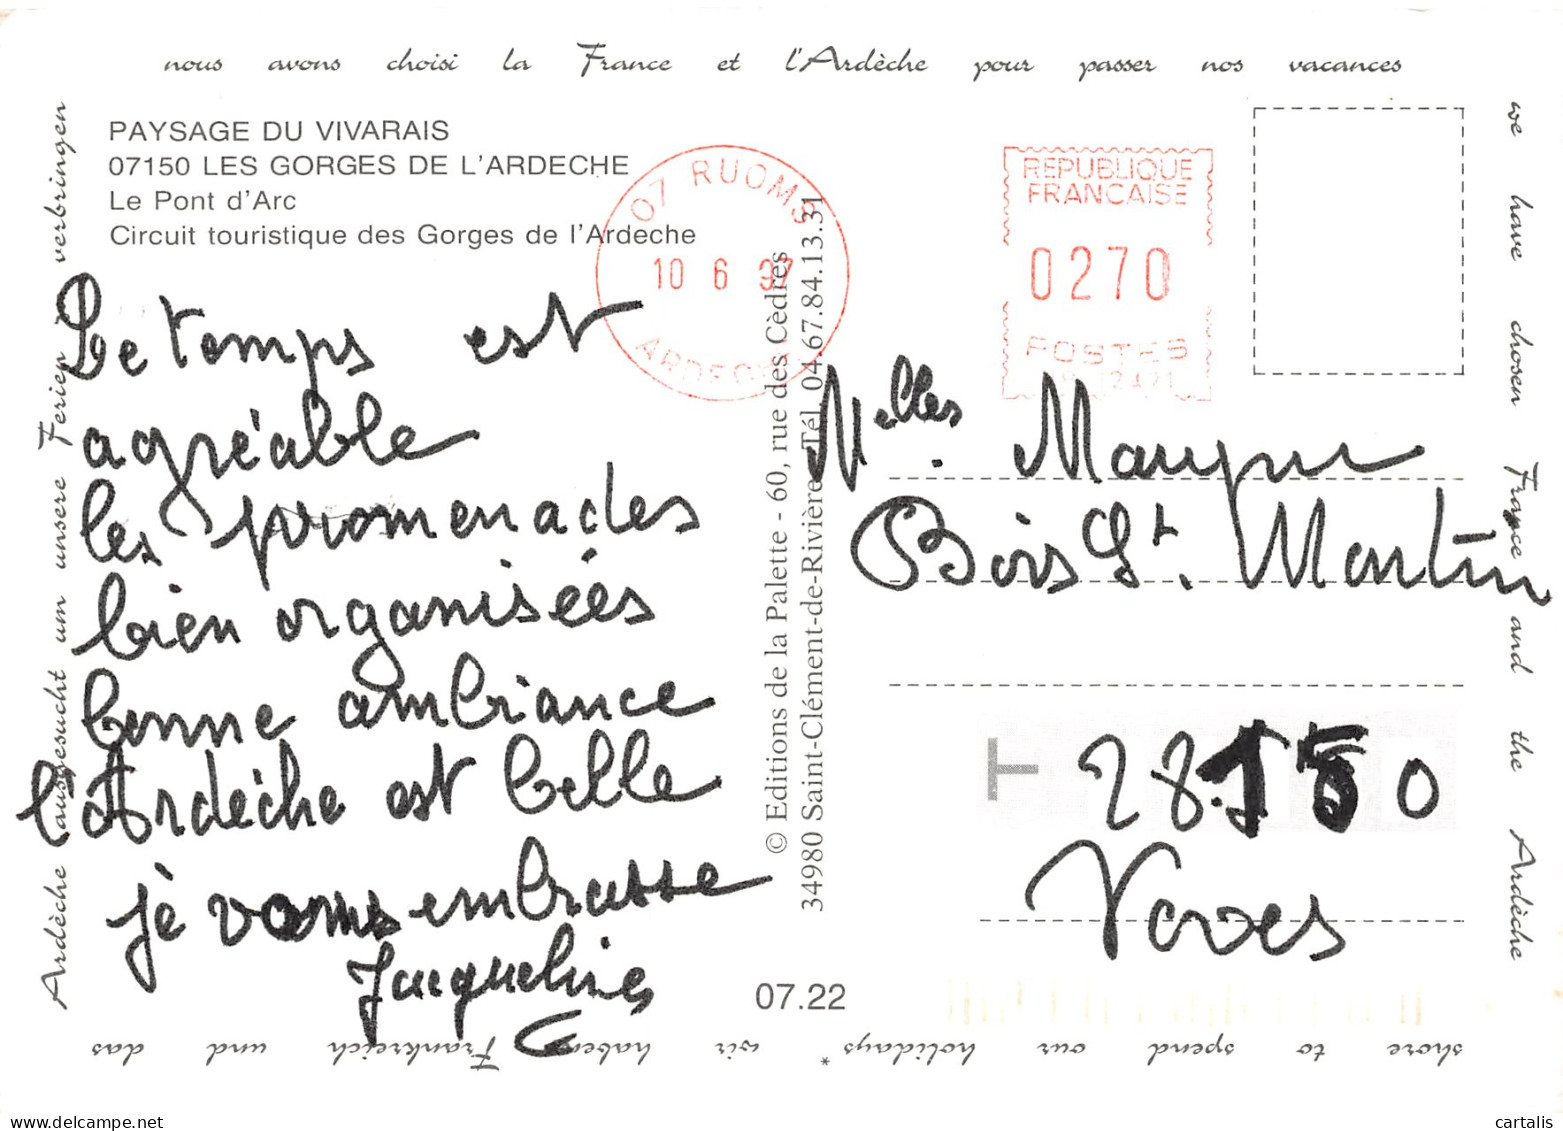 nous avons choisi la France et l'Ardèche pour passer nos vacances
PAYSAGE DU VIVARAIS
07150 LES GORGES DE L'ARDECHE
Le Pont d'Arc
Circuit touristique des Gorges de l'Ardeche
07 RUOMS
10 6 97
ARDECHE
REPUBLIQUE
FRANCAISE
0270
POSTES
Le temps est
agréable
les promenades
bien organisées
bonne ambiance
l'Ardèche est belle
je vous embrasse
Jacqueline
© Editions de la Palette - 60, rue des Cèdres
34980 Saint-Clément-de-Rivière Tél. 04.67.84.13.31
Melles
Bois St. Martin
T 28150
Voves
07.22
we have chosen France and the Ardèche
shore to spend our holidays *
wir haben Frankreich und das
Ardèche ausgesucht um unsere Ferien verbringen
cartalis